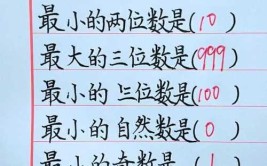 最小的两位数是(10)
最大的三位数是(999)
最小的三位数是(100)
最小的自然数是(0)
最小的奇数是(1